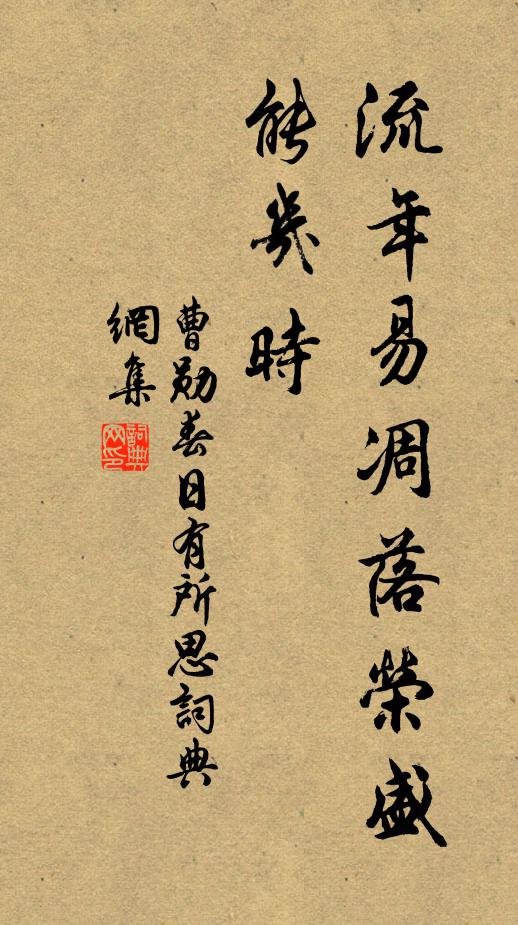 流年易凋落榮盛
能幾時
曹勛春日有所思詞典
網集
詞典
网印